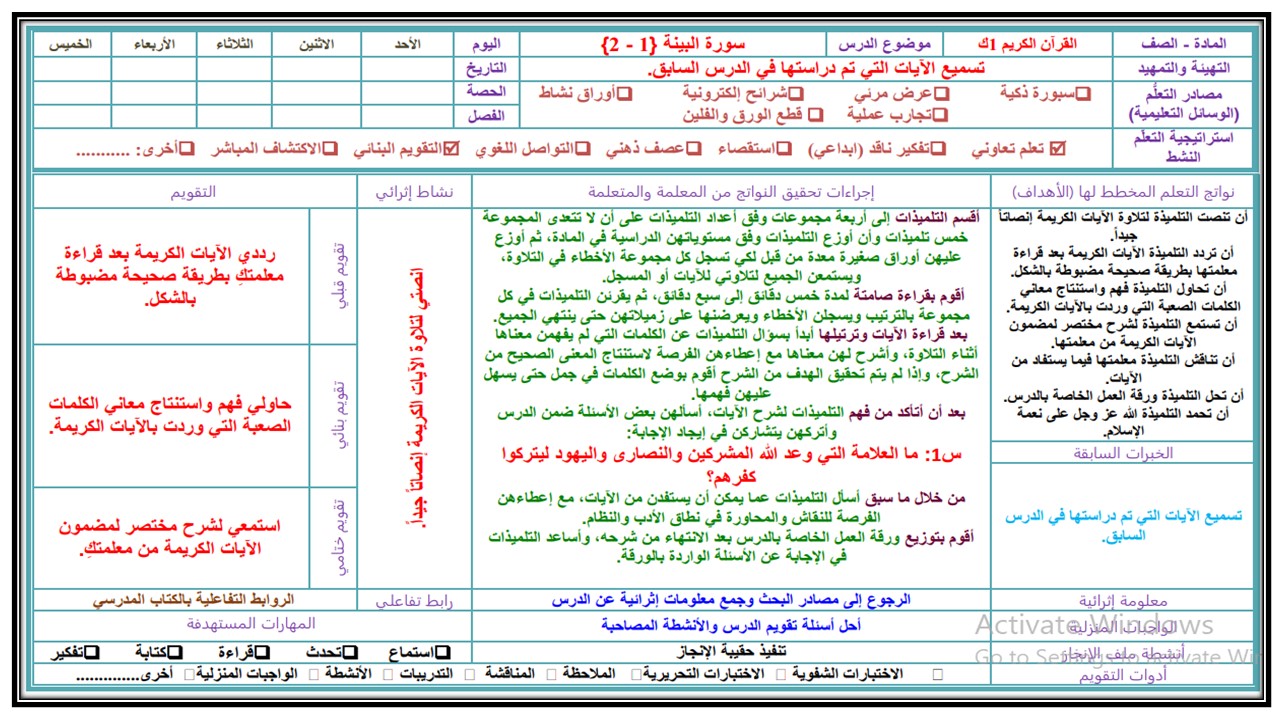 المادة - الصف
القرآن الكريم 1ك
موضوع الدرس
سورة البينة {1 - 2}
اليوم
الأحد
الاثنين
الثلاثاء
الأربعاء
الخميس
التهيئة والتمهيد
تسميع الآيات التي تم دراستها في الدرس السابق.
التاريخ
مصادر التعلُّم
(الوسائل التعليمية)
❑سبورة ذكية ❑عرض مرئي ❑شرائح إلكترونية ❑أوراق نشاط
❑تجارب عملية ❑ قطع الورق والفلين
الحصة
الفصل
استراتيجية التعلّم
النشط
☑ تعلم تعاوني ❑تفكير ناقد (ابداعي) ❑استقصاء ❑عصف ذهني ❑التواصل اللغوي ☑التقويم البنائي ❑الاكتشاف المباشر ❑أخرى: ...........
نواتج التعلم المخطط لها (الأهداف)
إجراءات تحقيق النواتج من المعلمة والمتعلمة
نشاط إثرائي
التقويم
أن تنصت التلميذة لتلاوة الآيات الكريمة إنصاتاً
جيداً.
أن تردد التلميذة الآيات الكريمة بعد قراءة
معلمتها بطريقة صحيحة مضبوطة بالشكل.
أن تحاول التلميذة فهم واستنتاج معاني
الكلمات الصعبة التي وردت بالآيات الكريمة.
أن تستمع التلميذة لشرح مختصر لمضمون
الآيات الكريمة من معلمتها.
أن تناقش التلميذة معلمتها فيما يستفاد من
الآيات.
أن تحل التلميذة ورقة العمل الخاصة بالدرس.
أن تحمد التلميذة الله عز وجل على نعمة
الإسلام.
الخبرات السابقة
تسميع الآيات التي تم دراستها في الدرس
السابق.
أقسم التلميذات إلى أربعة مجموعات وفق أعداد التلميذات على أن لا تتعدى المجموعة
خمس تلميذات وأن أوزع التلميذات وفق مستوياتهن الدراسية في المادة، ثم أوزع
عليهن أوراق صغيرة معدة من قبل لكي تسجل كل مجموعة الأخطاء في التلاوة،
ويستمعن الجميع لتلاوتي للآيات أو المسجل.
أقوم بقراءة صامتة لمدة خمس دقائق إلى سبع دقائق، ثم يقرئن التلميذات في كل
مجموعة بالترتيب ويسجلن الأخطاء ويعرضنها على زميلاتهن حتى ينتهي الجميع.
بعد قراءة الآيات وترتيلها أبدأ بسؤال التلميذات عن الكلمات التي لم يفهمن معناها
أثناء التلاوة، وأشرح لهن معناها مع إعطاءهن الفرصة لاستنتاج المعنى الصحيح من
الشرح، وإذا لم يتم تحقيق الهدف من الشرح أقوم بوضع الكلمات في جمل حتى يسهل
عليهن فهمها.
بعد أن أتأكد من فهم التلميذات لشرح الآيات، أسألهن بعض الأسئلة ضمن الدرس
وأتركهن يتشاركن في إيجاد الإجابة:
س1: ما العلامة التي وعد الله المشركين والنصارى واليهود ليتركوا
كفرهم؟
من خلال ما سبق أسأل التلميذات عما يمكن أن يستفدن من الآيات، مع إعطاءهن
الفرصة للنقاش والمحاورة في نطاق الأدب والنظام.
أقوم بتوزيع ورقة العمل الخاصة بالدرس بعد الانتهاء من شرحه، وأساعد التلميذات
في الإجابة عن الأسئلة الواردة بالورقة.
انصتي لتلاوة الآيات الكريمة إنصاتاً جيداً.
تقويم قبلي
رددي الآيات الكريمة بعد قراءة
معلمتكِ بطريقة صحيحة مضبوطة
بالشكل.
تقويم بنائي
حاولي فهم واستنتاج معاني الكلمات
الصعبة التي وردت بالآيات الكريمة.
تقويم ختامي
استمعي لشرح مختصر لمضمون
الآيات الكريمة من معلمتكِ.
معلومة إثرائية
الرجوع إلى مصادر البحث وجمع معلومات إثرائية عن الدرس
رابط تفاعلي
الروابط التفاعلية بالكتاب المدرسي
الواجبات المنزلية
أحل أسئلة تقويم الدرس والأنشطة المصاحبة
المهارات المستهدفة
أنشطة ملف الإنجاز
تنفيذ حقيبة الإنجاز
❑استماع ❑تحدث ❑قراءة ❑كتابة ❑تفكير
أدوات التقويم
□ الاختبارات الشفوية □ الاختبارات التحريرية □ الملاحظة □ المناقشة □ التدريبات □ الأنشطة □ الواجبات المنزلية □ أخرى..............
Activate Windows
Go to Settings to Activate Win